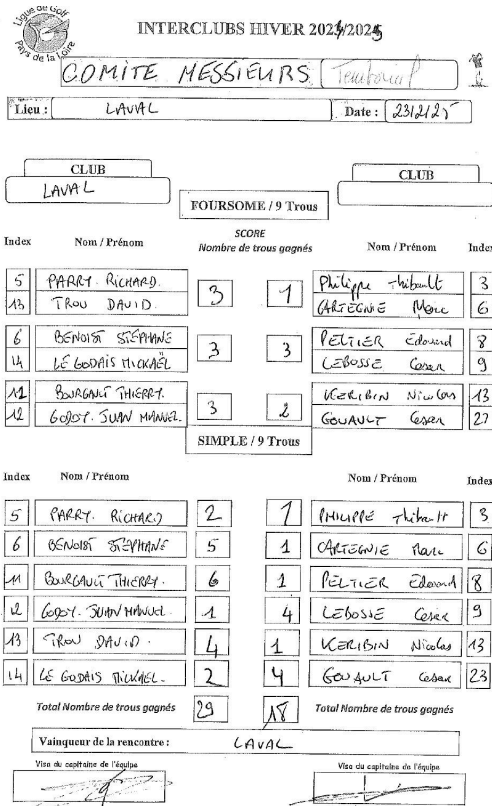 Ligue de Golf
Pays de la Loire
INTERCLUBS HIVER 2024/2025
COMITE MESSIEURS Territorial
Lieu : LAVAL Date : 23/2/25
CLUB CLUB
LAVAL
FOURSOME / 9 Trous
SCORE
Index Nom / Prénom Nombre de trous gagnés Nom / Prénom Index
5 PARRY. RICHARD. 3 1 Philippe Thibault 3
13 TROU DAVID. CARTEGNIE Marc 6
6 BENOIST STÉPHANE 3 3 PELTIER Edouard 8
14 LE GODAIS MICKAËL LEBOSSE Cesar 9
11 BOURGAULT THIERRY. 3 2 KERIBIN Nicolas 13
12 GODOY. JUAN MANUEL. GOUAULT Cesar 27
SIMPLE / 9 Trous
Index Nom / Prénom Nom / Prénom Index
5 PARRY. RICHARD 2 1 PHILIPPE Thibault 3
6 BENOIST STÉPHANE 5 1 CARTEGNIE Marc 6
11 BOURGAULT THIERRY. 6 1 PELTIER Edouard 8
12 GODOY. JUAN MANUEL. 1 4 LEBOSSE Cesar 9
13 TROU DAVID. 4 1 KERIBIN Nicolas 13
14 LE GODAIS MICKAEL. 2 4 GOUAULT Cesar 23
Total Nombre de trous gagnés 29 18 Total Nombre de trous gagnés
Vainqueur de la rencontre : LAVAL
Visa du capitaine de l'équipe Visa du capitaine de l'équipe